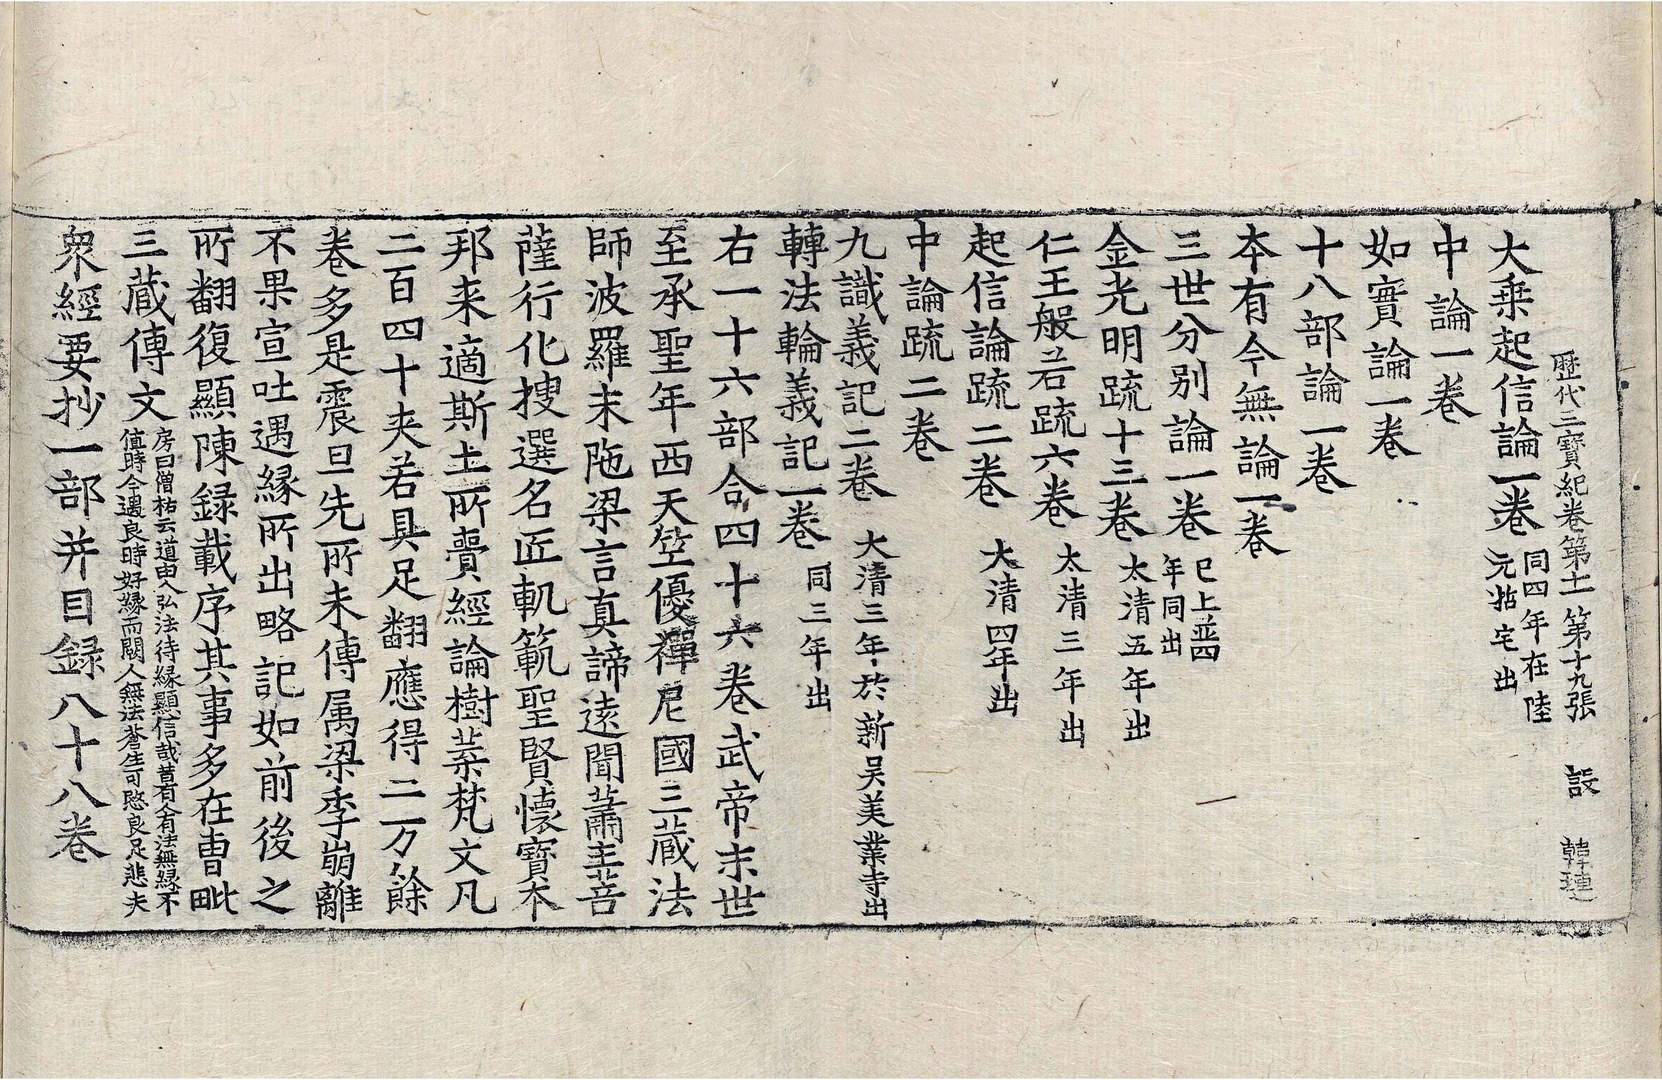 歴代三寳紀卷第十一 第十九張 設 韓璉
大乗起信論一卷 同四年在陸元拈宅出
中論一卷
如實論一卷
十八部論一卷
本有今無論一卷
三世分别論一卷 巳上並四年同出
金光明疏十三卷 太清五年出
仁王般若疏六卷 太清三年出
起信論疏二卷 大清四年出
中論疏二卷
九識義記二卷 大清三年於新吴美業寺出
轉法輪義記一卷 同三年出
右一十六部合四十六卷武帝末世
至承聖年西天竺優禪尼國三藏法
師波羅末陁梁言真諦逺聞蕭主菩
薩行化搜選名匠軌範聖賢懷寳本
邦来適斯土所賷經論樹葉梵文凡
二百四十夹若具足翻應得二万餘
卷多是震旦先所未傳属梁季崩離
不果宣吐遇縁所出略記如前後之
所翻復顯陳録載序其事多在曺毗
三藏傳文 房曰僧祐云道由人弘法待縁顯信哉昔有人有法無縁不值時今遇良時好縁而闕人無法蒼生可愍良足悲夫
衆經要抄一部并目録八十八卷